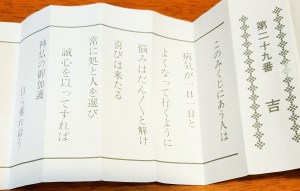 第二十九番
吉
このみくじにあう人は
病気が一日一日と
よくなって行くように
悩みはだん〱と解け
喜びは来たる
常に処と人を選び
誠心を以ってすれば
神仏の御加護